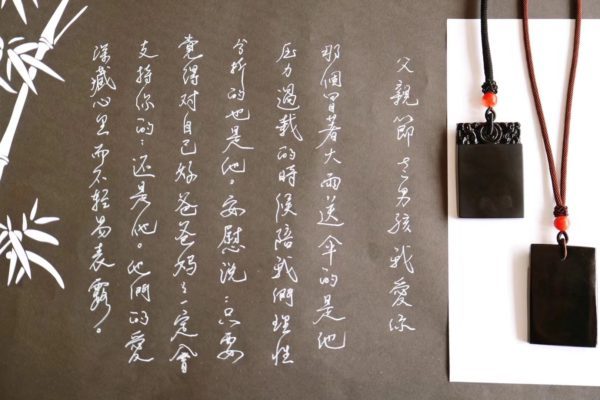 父親節 老男孩我愛你
那個冒著大雨送傘的是他
壓力過載的時候陪我們理性
分析的也是他。安慰說:只要
覺得對自己好爸爸媽々一定會
支持你的:還是他。他們的愛
深藏心里而不輕易表露。